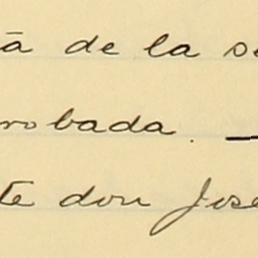 de la
robada. —
te don José